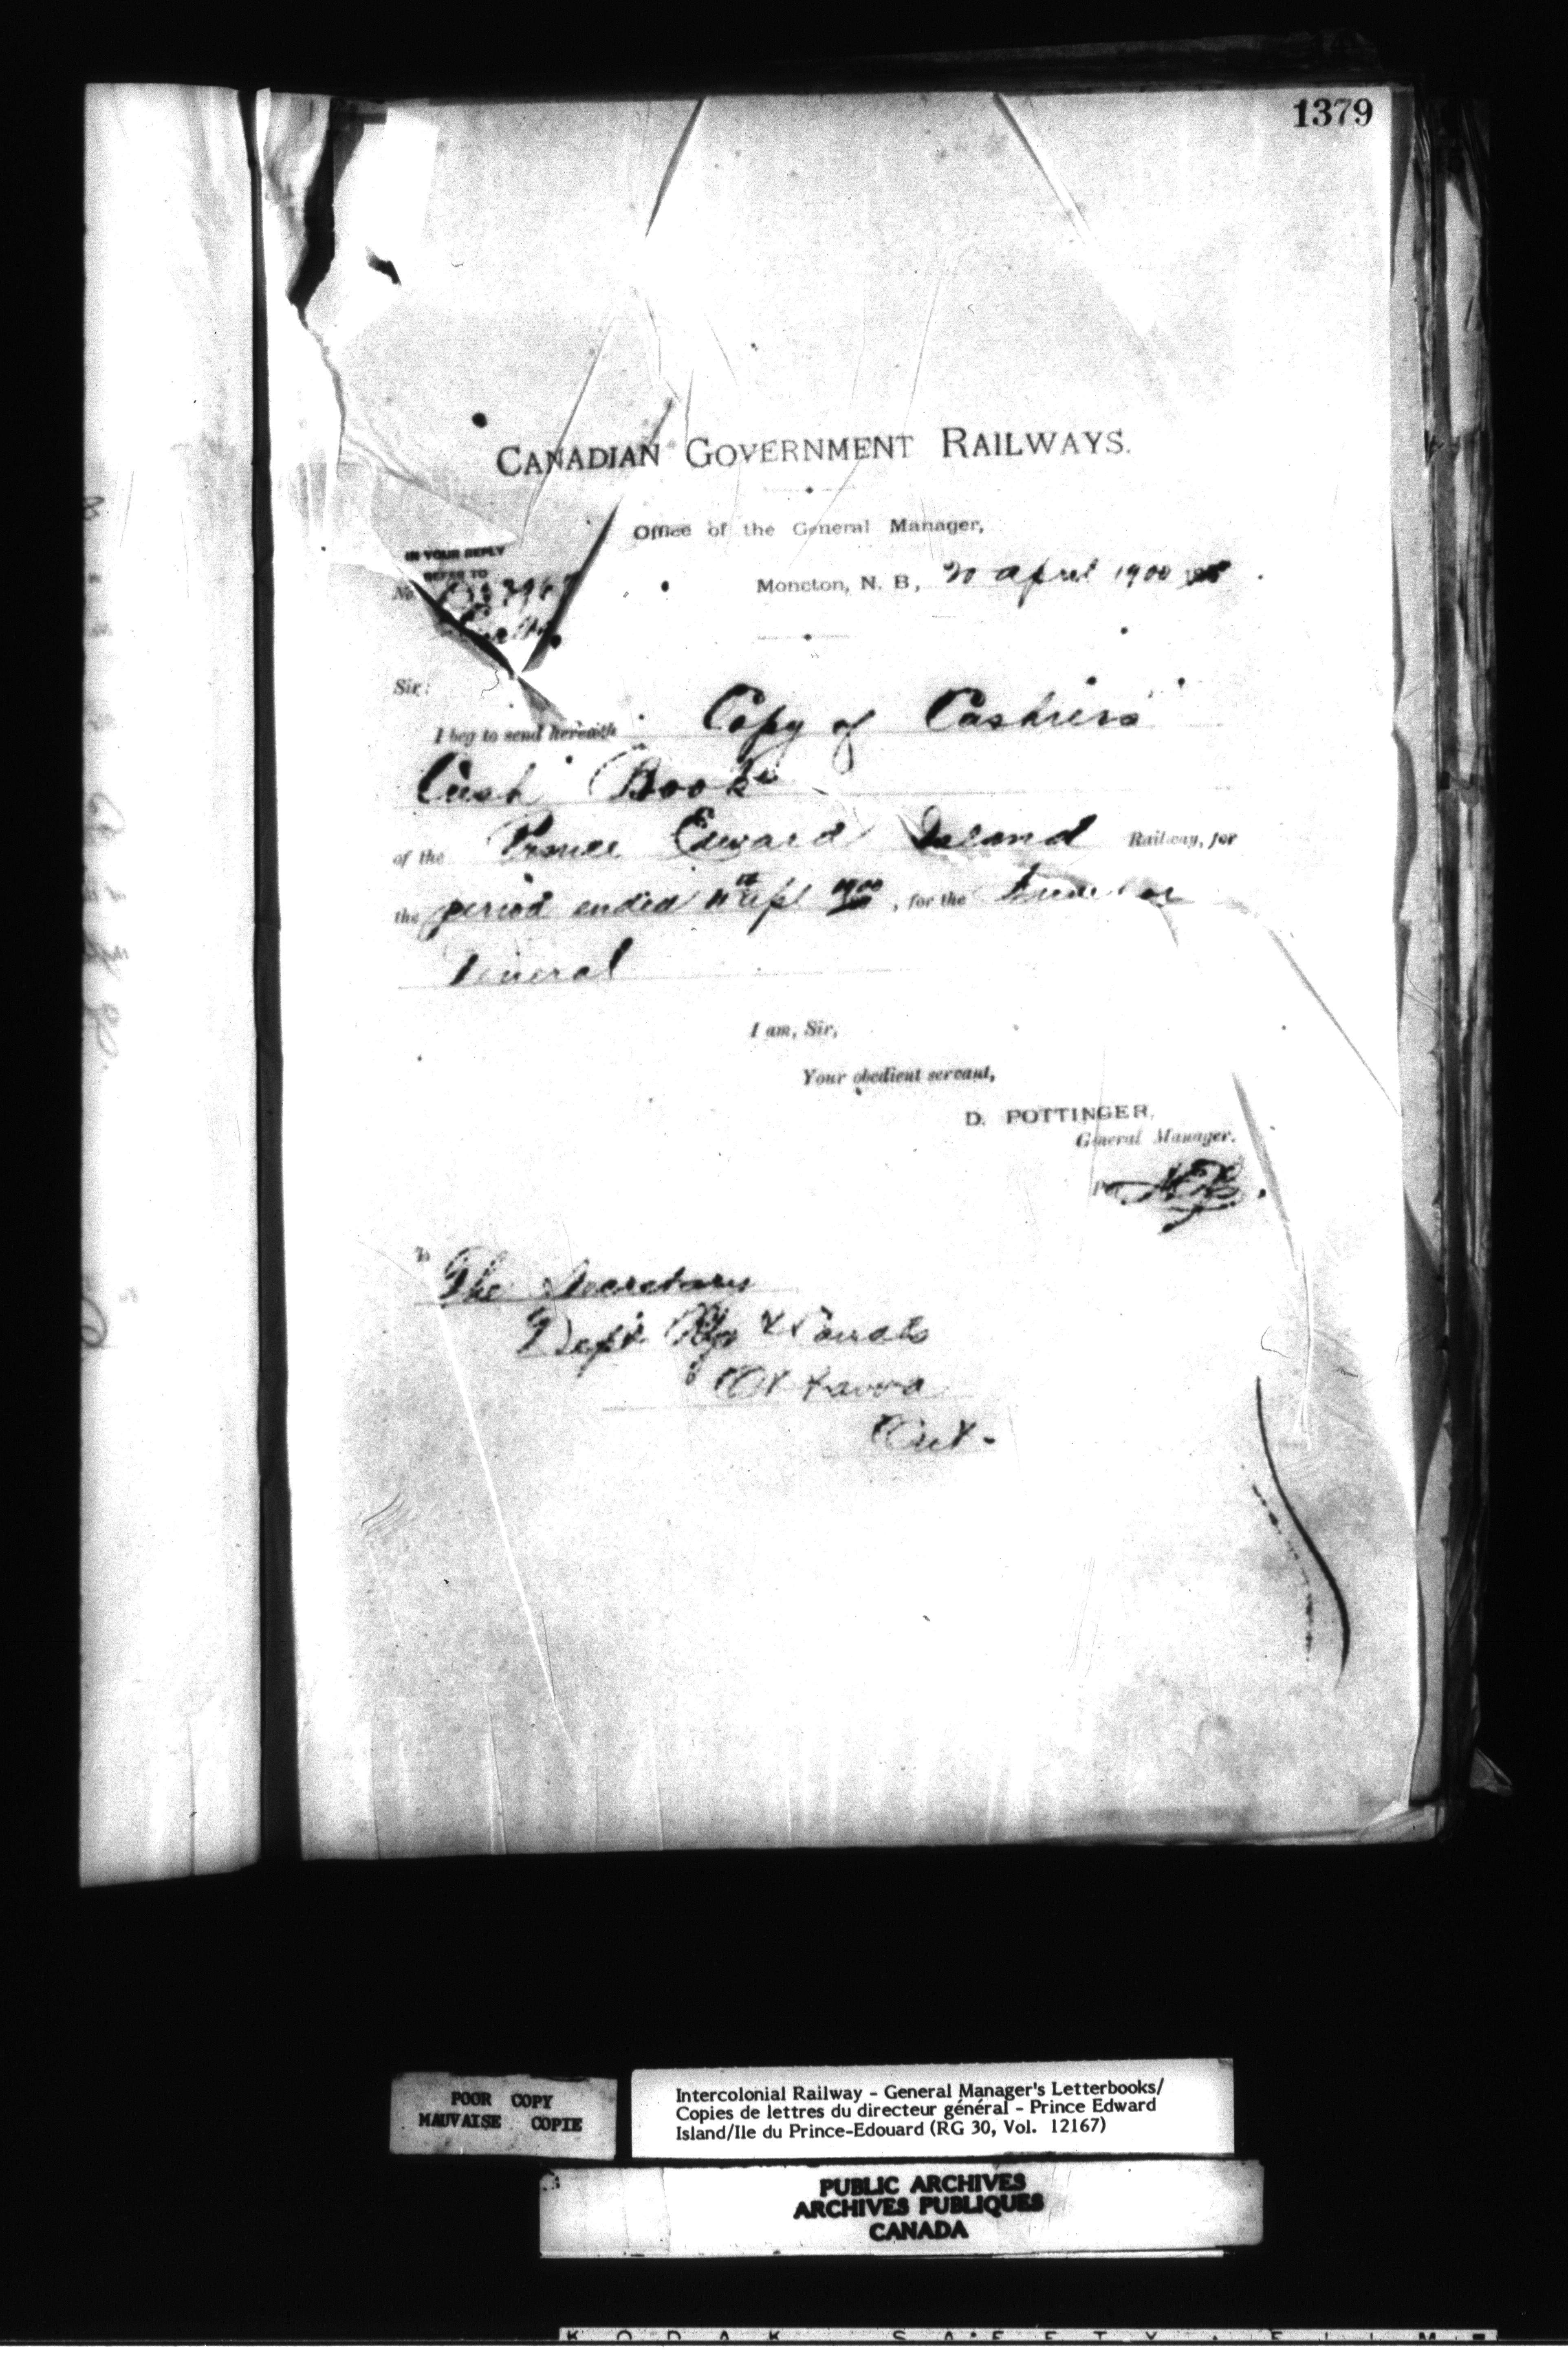 1379
CANADIAN GOVERNMENT RAILWAYS.
Office of the General Manager,
IN YOUR REPLY
REFER TO
No
Moncton, N. B., 20 April 1900
Sir:
I beg to send herewith Copy of Cashiers
Cash Book
of the Prince Edward Island Railway, for
the period ended 11th Apl 1900, for the
General
I am, Sir,
Your obedient servant,
D. POTTINGER,
General Manager.
To
The Secretary
Dept Rys & Canals
Ottawa
Ont.
POOR COPY
MAUVAISE COPIE
Intercolonial Railway - General Manager's Letterbooks/
Copies de lettres du directeur général - Prince Edward
Island/Ile du Prince-Edouard (RG 30, Vol. 12167)
PUBLIC ARCHIVES
ARCHIVES PUBLIQUES
CANADA
KODAK SAFETY FILM